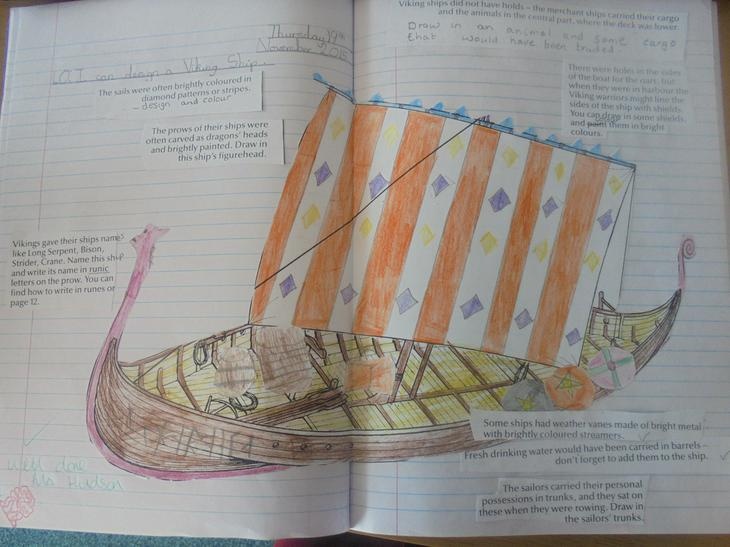 Thursday 19th
November 2015
L.O I can design a Viking Ship.
The sails were often brightly coloured in
diamond patterns or stripes.
- design and colour
The prows of their ships were
often carved as dragons' heads
and brightly painted. Draw in
this ship's figurehead.
Vikings gave their ships names
like Long Serpent, Bison,
Strider, Crane. Name this ship
and write its name in runic
letters on the prow. You can
find how to write in runes on
page 12.
Well done
Ms Hudson
Viking ships did not have holds – the merchant ships carried their cargo
and the animals in the central part, where the deck was lower.
Draw in an animal and some cargo
that would have been traded.
There were holes in the sides
of the boat for the oars, but
when they were in harbour the
Viking warriors might line the
sides of the ship with shields.
You can draw in some shields
and paint them in bright
colours.
Some ships had weather vanes made of bright metal
with brightly coloured streamers.
Fresh drinking water would have been carried in barrels –
don't forget to add them to the ship.
The sailors carried their personal
possessions in trunks, and they sat on
these when they were rowing. Draw in
the sailors' trunks.